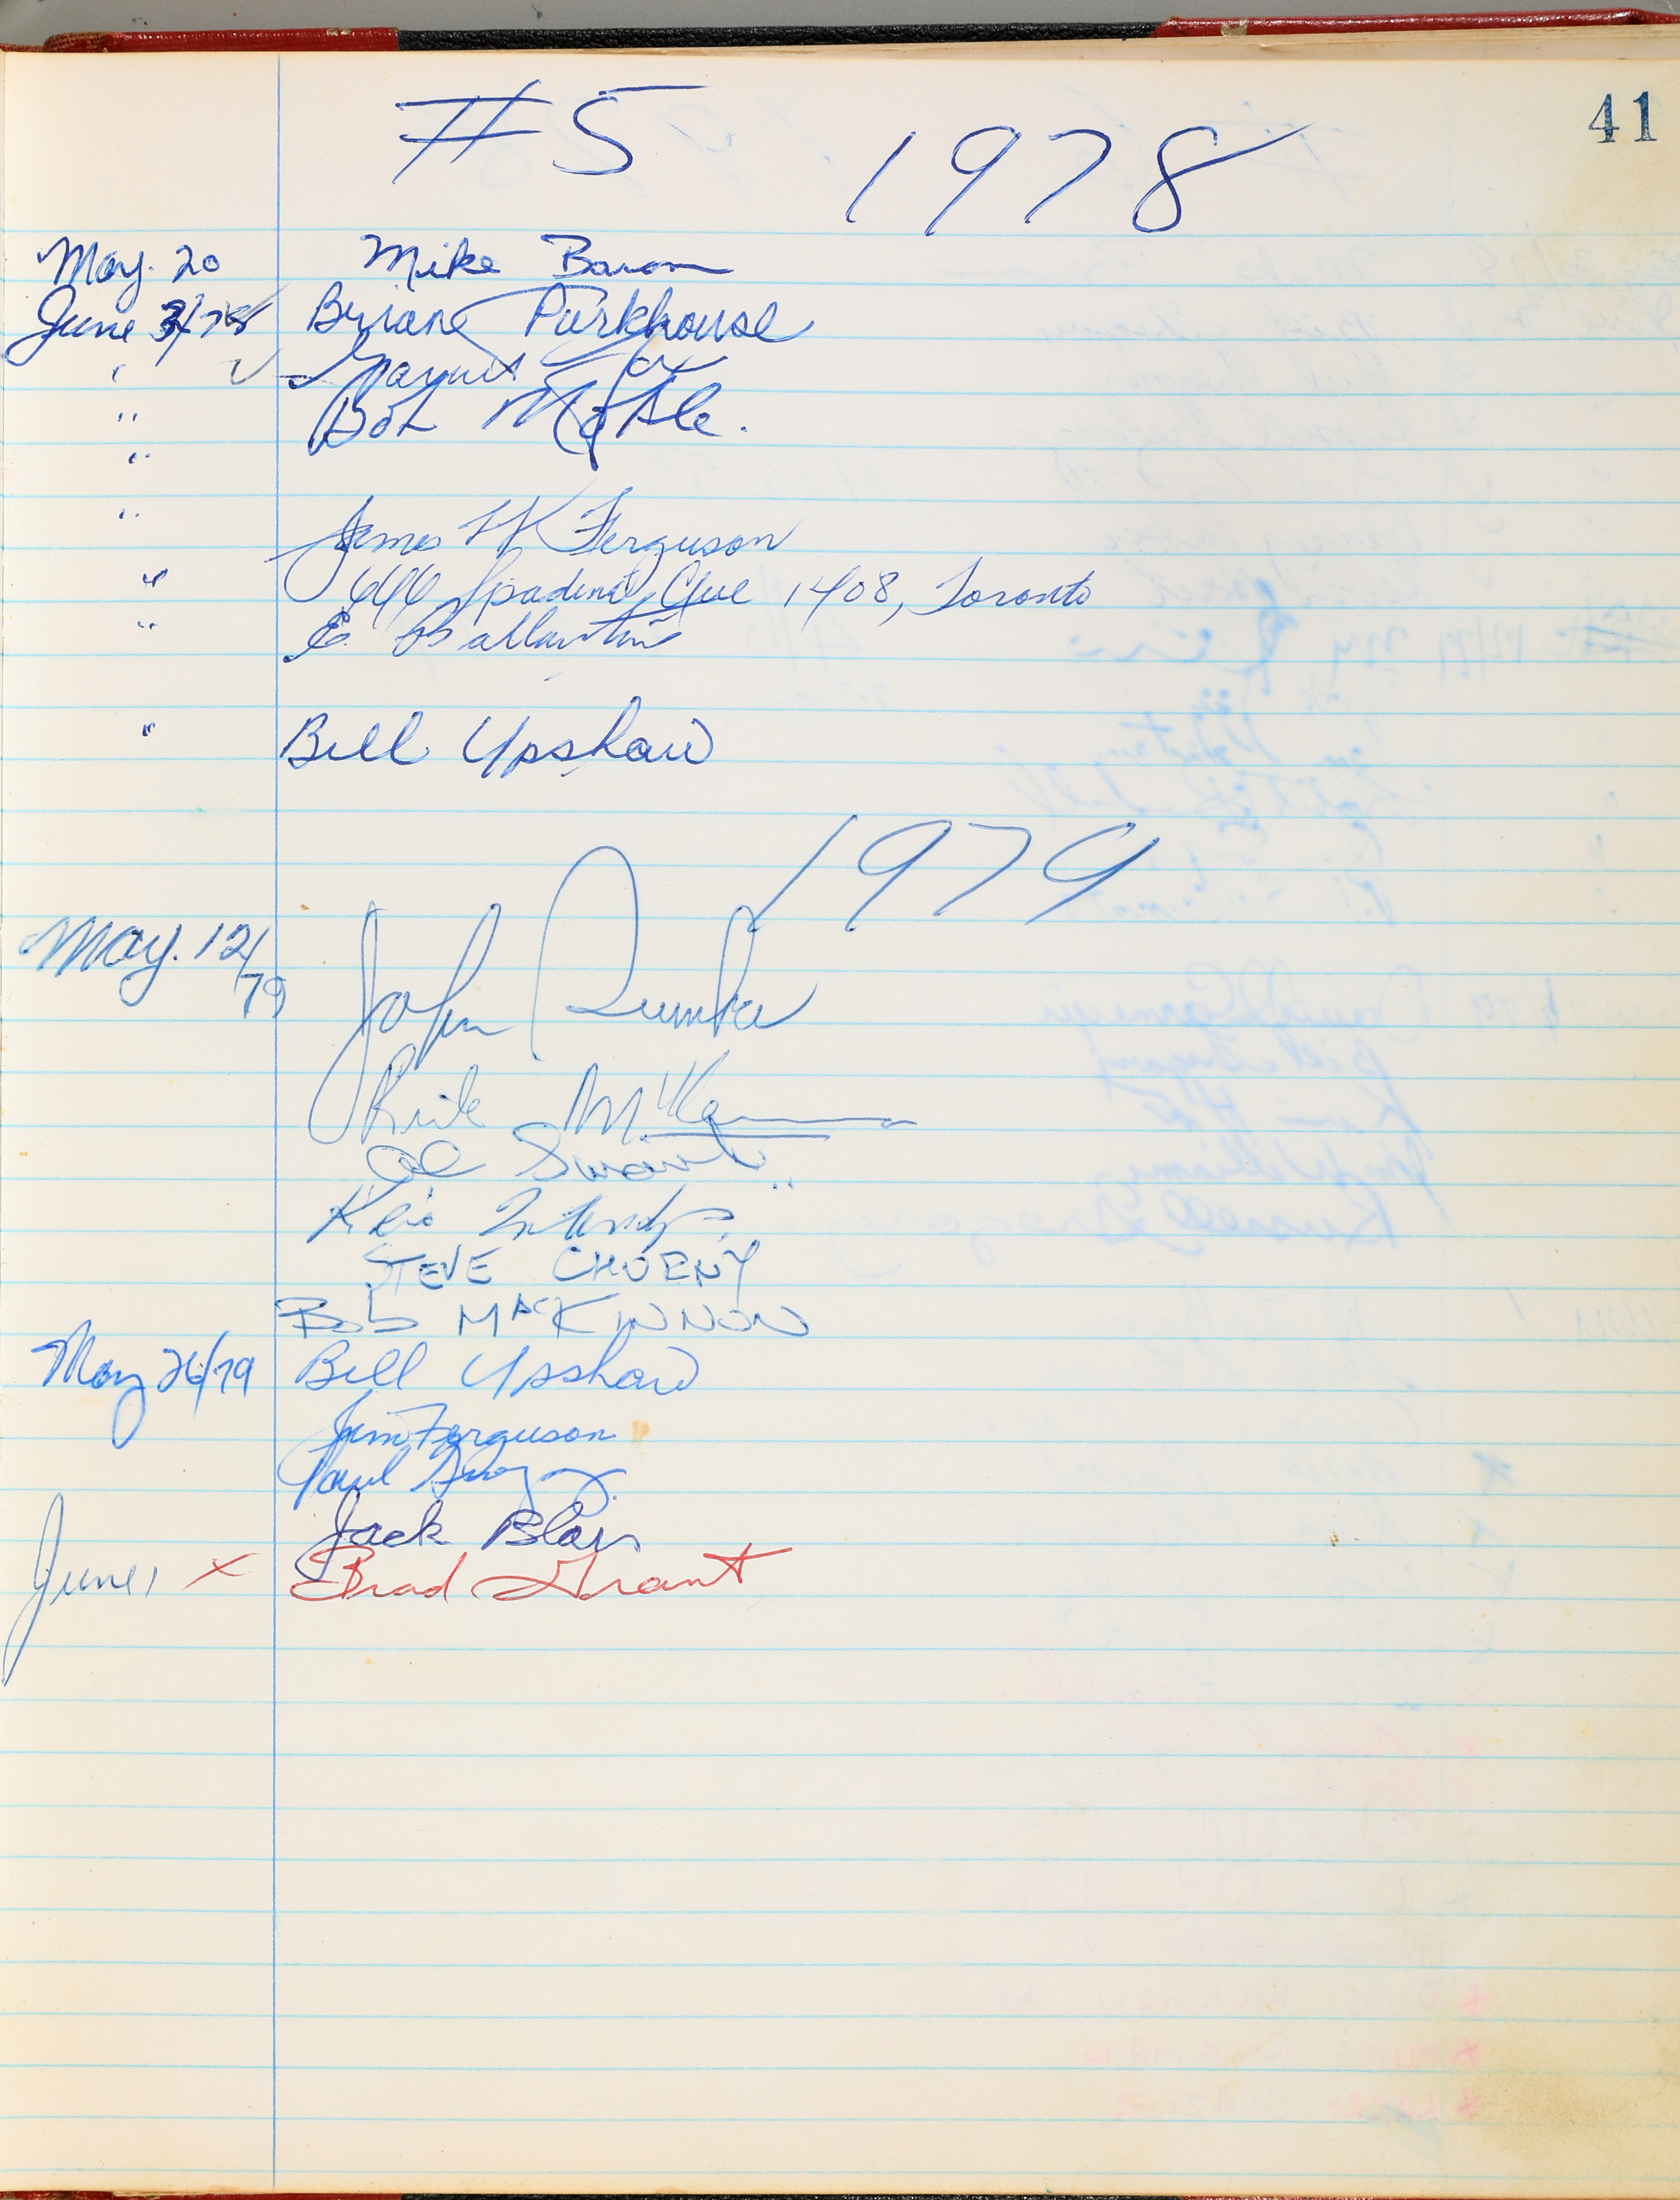 41
#5 1978
May. 20 Mike Baron
June 3/78 Brian Parkhouse
" ✓ Garnet
" Bob
"
" James W K Ferguson
" 646 Spadina Ave 1408, Toronto
" E. Ballantine
" Bill Upshaw
1979
May. 12/79 John
Rick
Al
STEVE CHUENY
Bob MACKINNON
May 26/79 Bill Upshaw
Jim Ferguson
Paul
Jack Blair
June 1 x Brad Grant